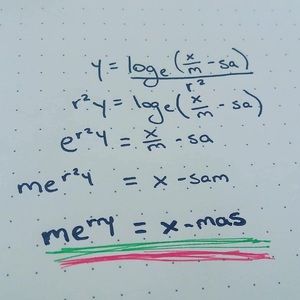 y = logₑ(x/m - sa) / r²
r²y = logₑ(x/m - sa)
e^r²y = x/m - sa
me^r²y = x - sam
me^rry = x - mas